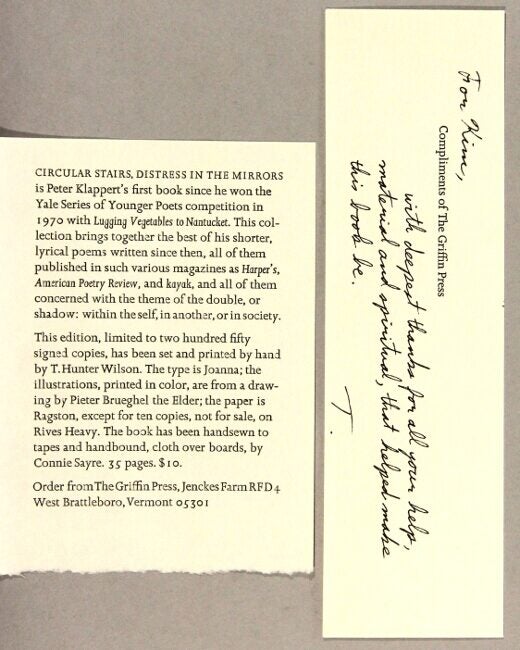 CIRCULAR STAIRS, DISTRESS IN THE MIRRORS
is Peter Klappert's first book since he won the
Yale Series of Younger Poets competition in
1970 with Lugging Vegetables to Nantucket. This col-
lection brings together the best of his shorter,
lyrical poems written since then, all of them
published in such various magazines as Harper's,
American Poetry Review, and kayak, and all of them
concerned with the theme of the double, or
shadow: within the self, in another, or in society.
This edition, limited to two hundred fifty
signed copies, has been set and printed by hand
by T. Hunter Wilson. The type is Joanna; the
illustrations, printed in color, are from a draw-
ing by Pieter Brueghel the Elder; the paper is
Ragston, except for ten copies, not for sale, on
Rives Heavy. The book has been handsewn to
tapes and handbound, cloth over boards, by
Connie Sayre. 35 pages. $10.
Order from The Griffin Press, Jenckes Farm RFD 4
West Brattleboro, Vermont 05301
For Kim,
Compliments of The Griffin Press
with deepest thanks for all your help,
material and spiritual, that helped make
this book be.
T.